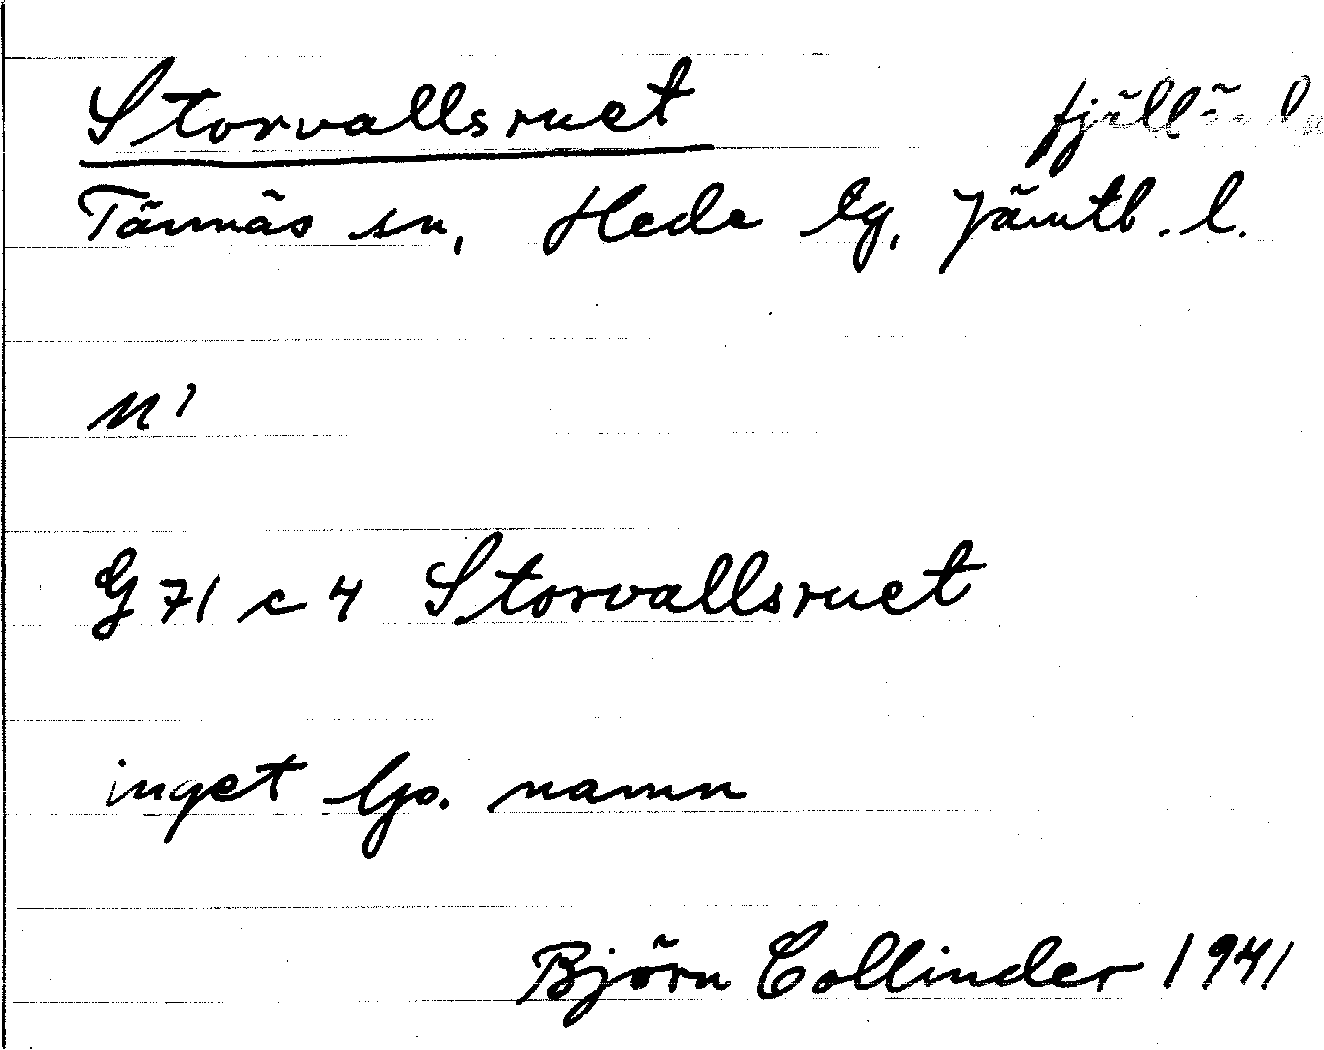 Storvallsruet
Tännäs sn, Hede lg, Jämtb. l.
n¹
G 71 c 4 Storvallsruet
inget lp. namn
Björn Collinder 1941